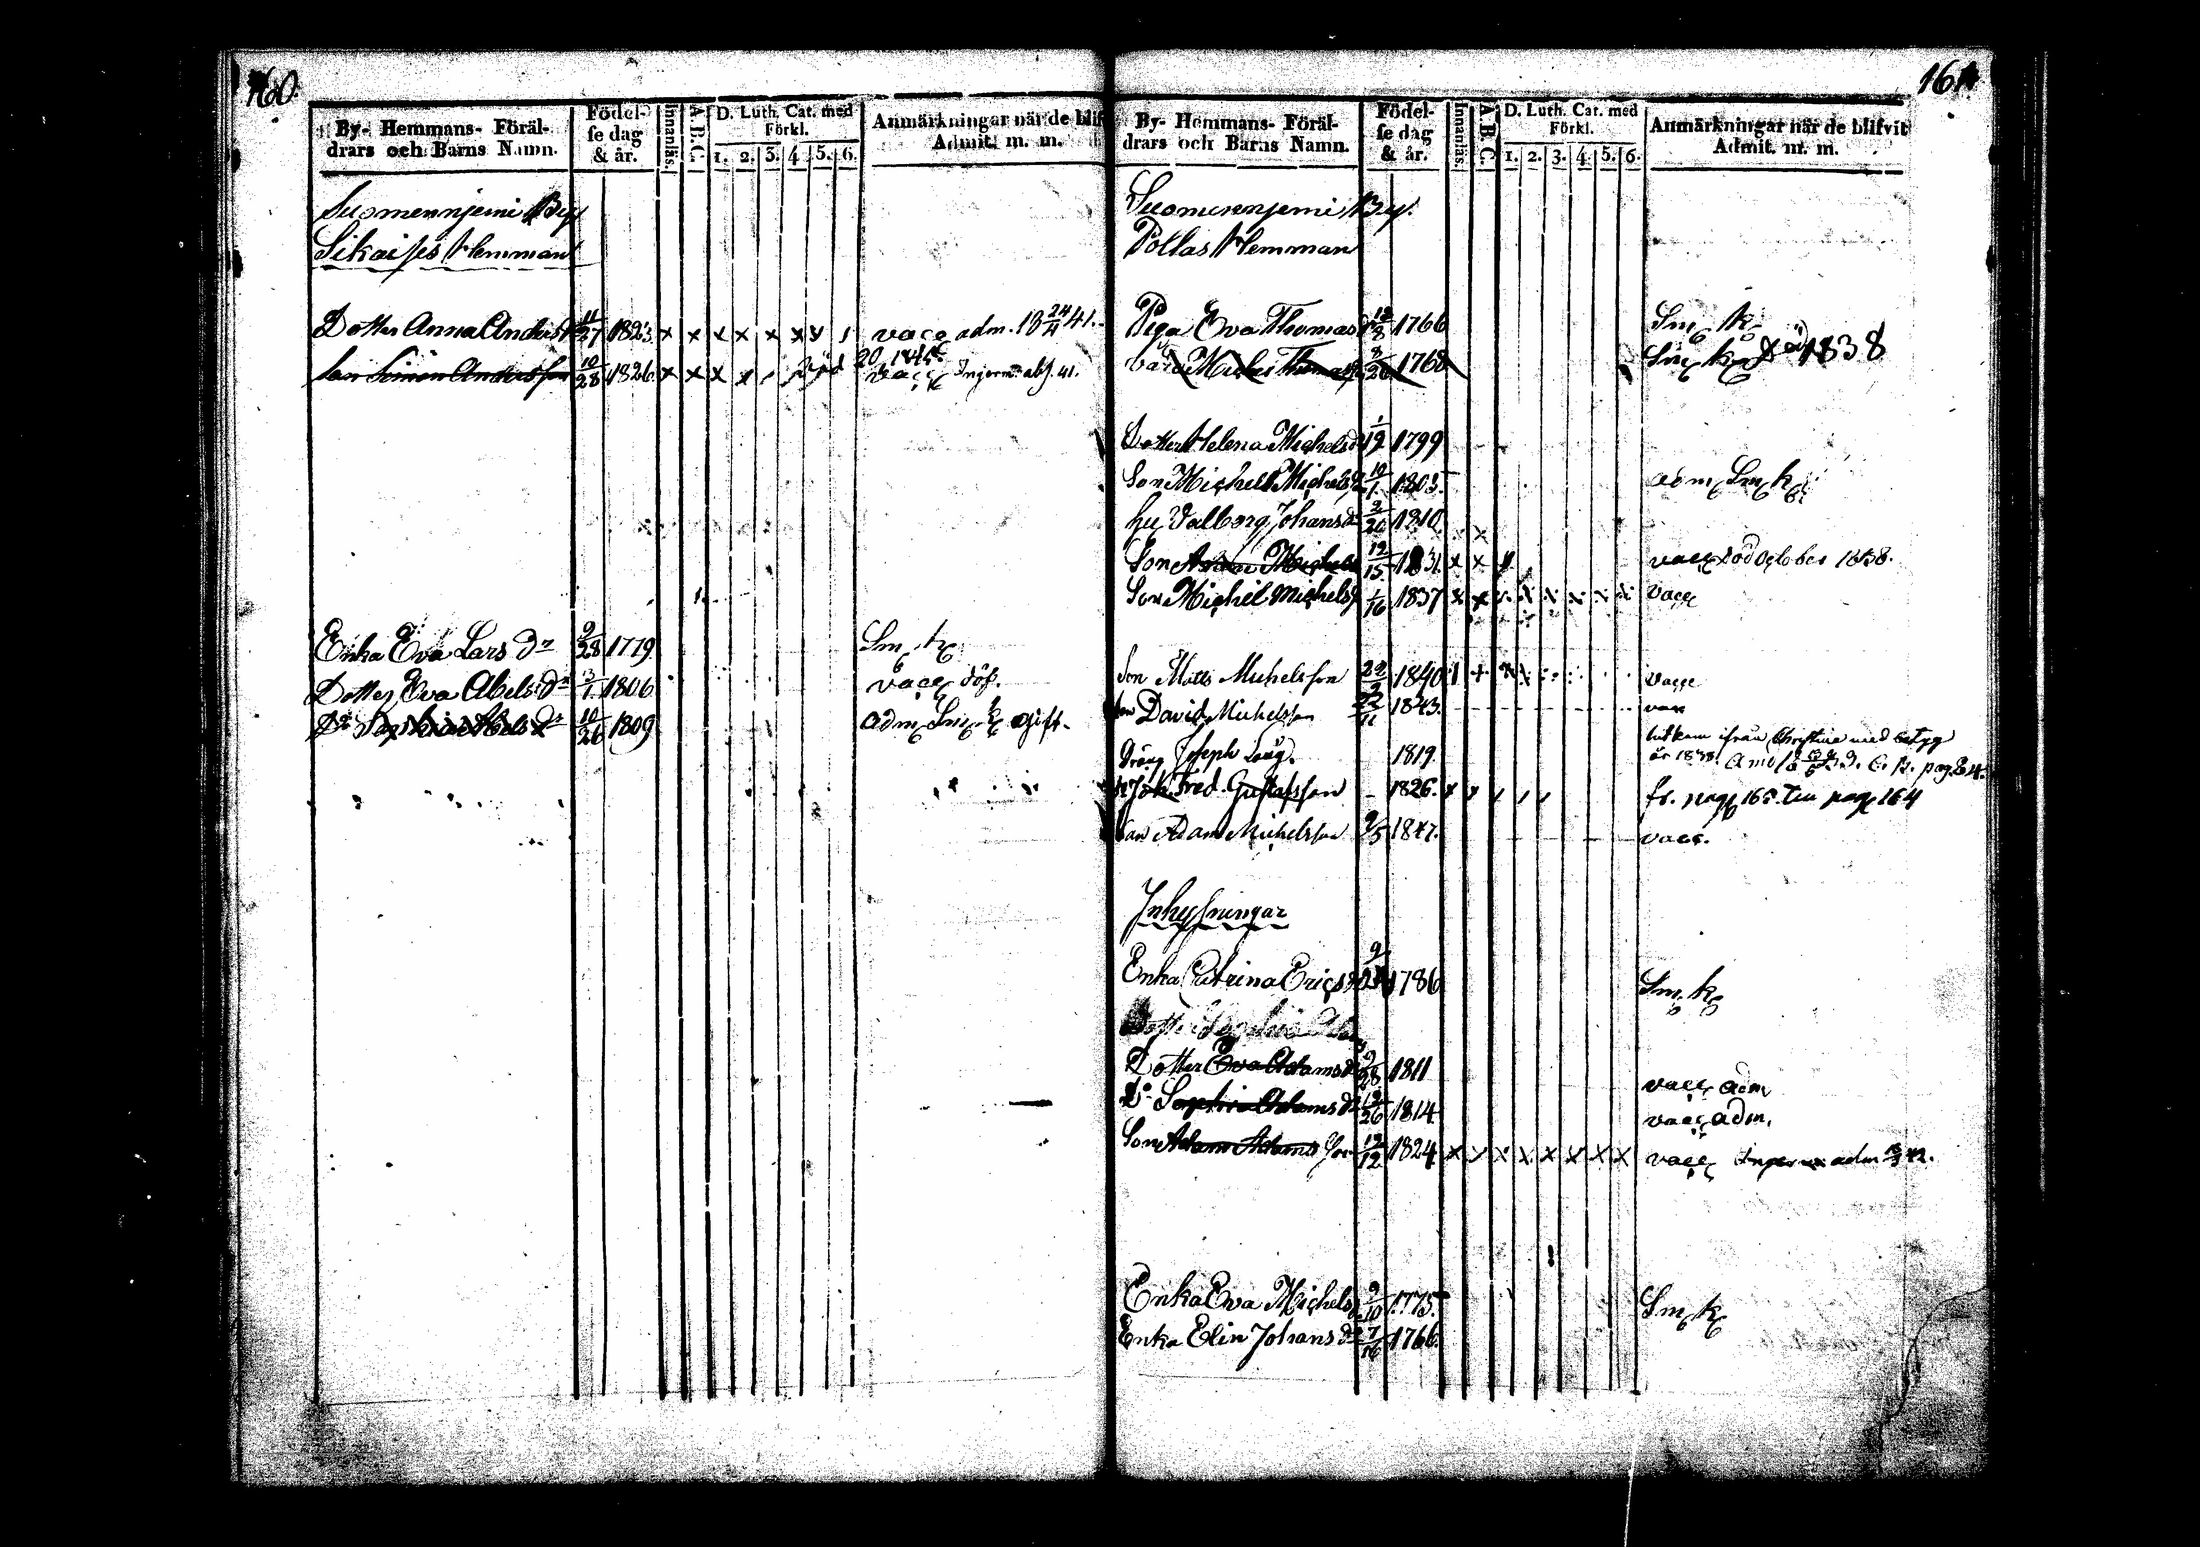 160.
By- Hemmans- Föräl-
drars och Barns Namn.
Födel-
se dag
& år.
Innanläs.
A.B.C.
D. Luth. Cat. med
Förkl.
1. 2. 3. 4 5. 6.
Anmärkningar när de blif
Admit. m. m.
Suomennjemi By
Sikaises Hemman
Dotter Anna Anders 11/27 1823. x x x x x x x vacc adm. 18 24/4 41.
Son Simon Andersson 10/28 1826. x x x vacc abs. 41.
Enka Eva Lars dr 9/28 1779 Sm k
Dotter Eva Abels dr 3/1 1806 vacc döf.
Do Abels dr 10/26 1809 adm Sm k gift.
161
By- Hemmans- Föräl-
drars och Barns Namn.
Födel-
se dag
& år.
Innanläs.
A B C.
D. Luth. Cat. med
Förkl.
1. 2. 3. 4. 5. 6.
Anmärkningar när de blifvit
Admit. m. m.
Suomennjemi By.
Pollas Hemman
Piga Eva Thomas 12/8 1766 Sm k
Michel Thomas 8/26 1768 Sm k 1838
Dotter Helena Michelsd 1/19 1799
Son Michel Michels 10/1 1803. adm Sm k
hu Valborg Johansd 3/20 1810
Son Michels 12/15 1831. x x vacc död October 1838.
Son Michel Michels 1/16 1837 x x x x x x x vacc
Son Matts Michelsson 22/9 1840 vacc
Son David Michelsson 22/11 1843. vacc
Dräng Joseph 1819. hitkom ifrån Christina med betyg
år 1838. pag.
Joh. Fred. Gustafsson - 1826. x x fr. pag 165. till pag 164
Son Adam Michelsson 9/5 1847. vacc.
Inhysningar
Enka Catrina Erics 9 1786 Sm k
Dotter
Dotter Eva Adamsdr 9/28 1811 vacc adm
Do Sophia Adamsdr 12/26 1814 vacc adm.
Son Adam Adams son 12/12 1824 x x x x x x x x vacc adm 42.
Enka Eva Michelsd 9/10 1775. Sm k
Enka Elin Johansd 7/16 1766.